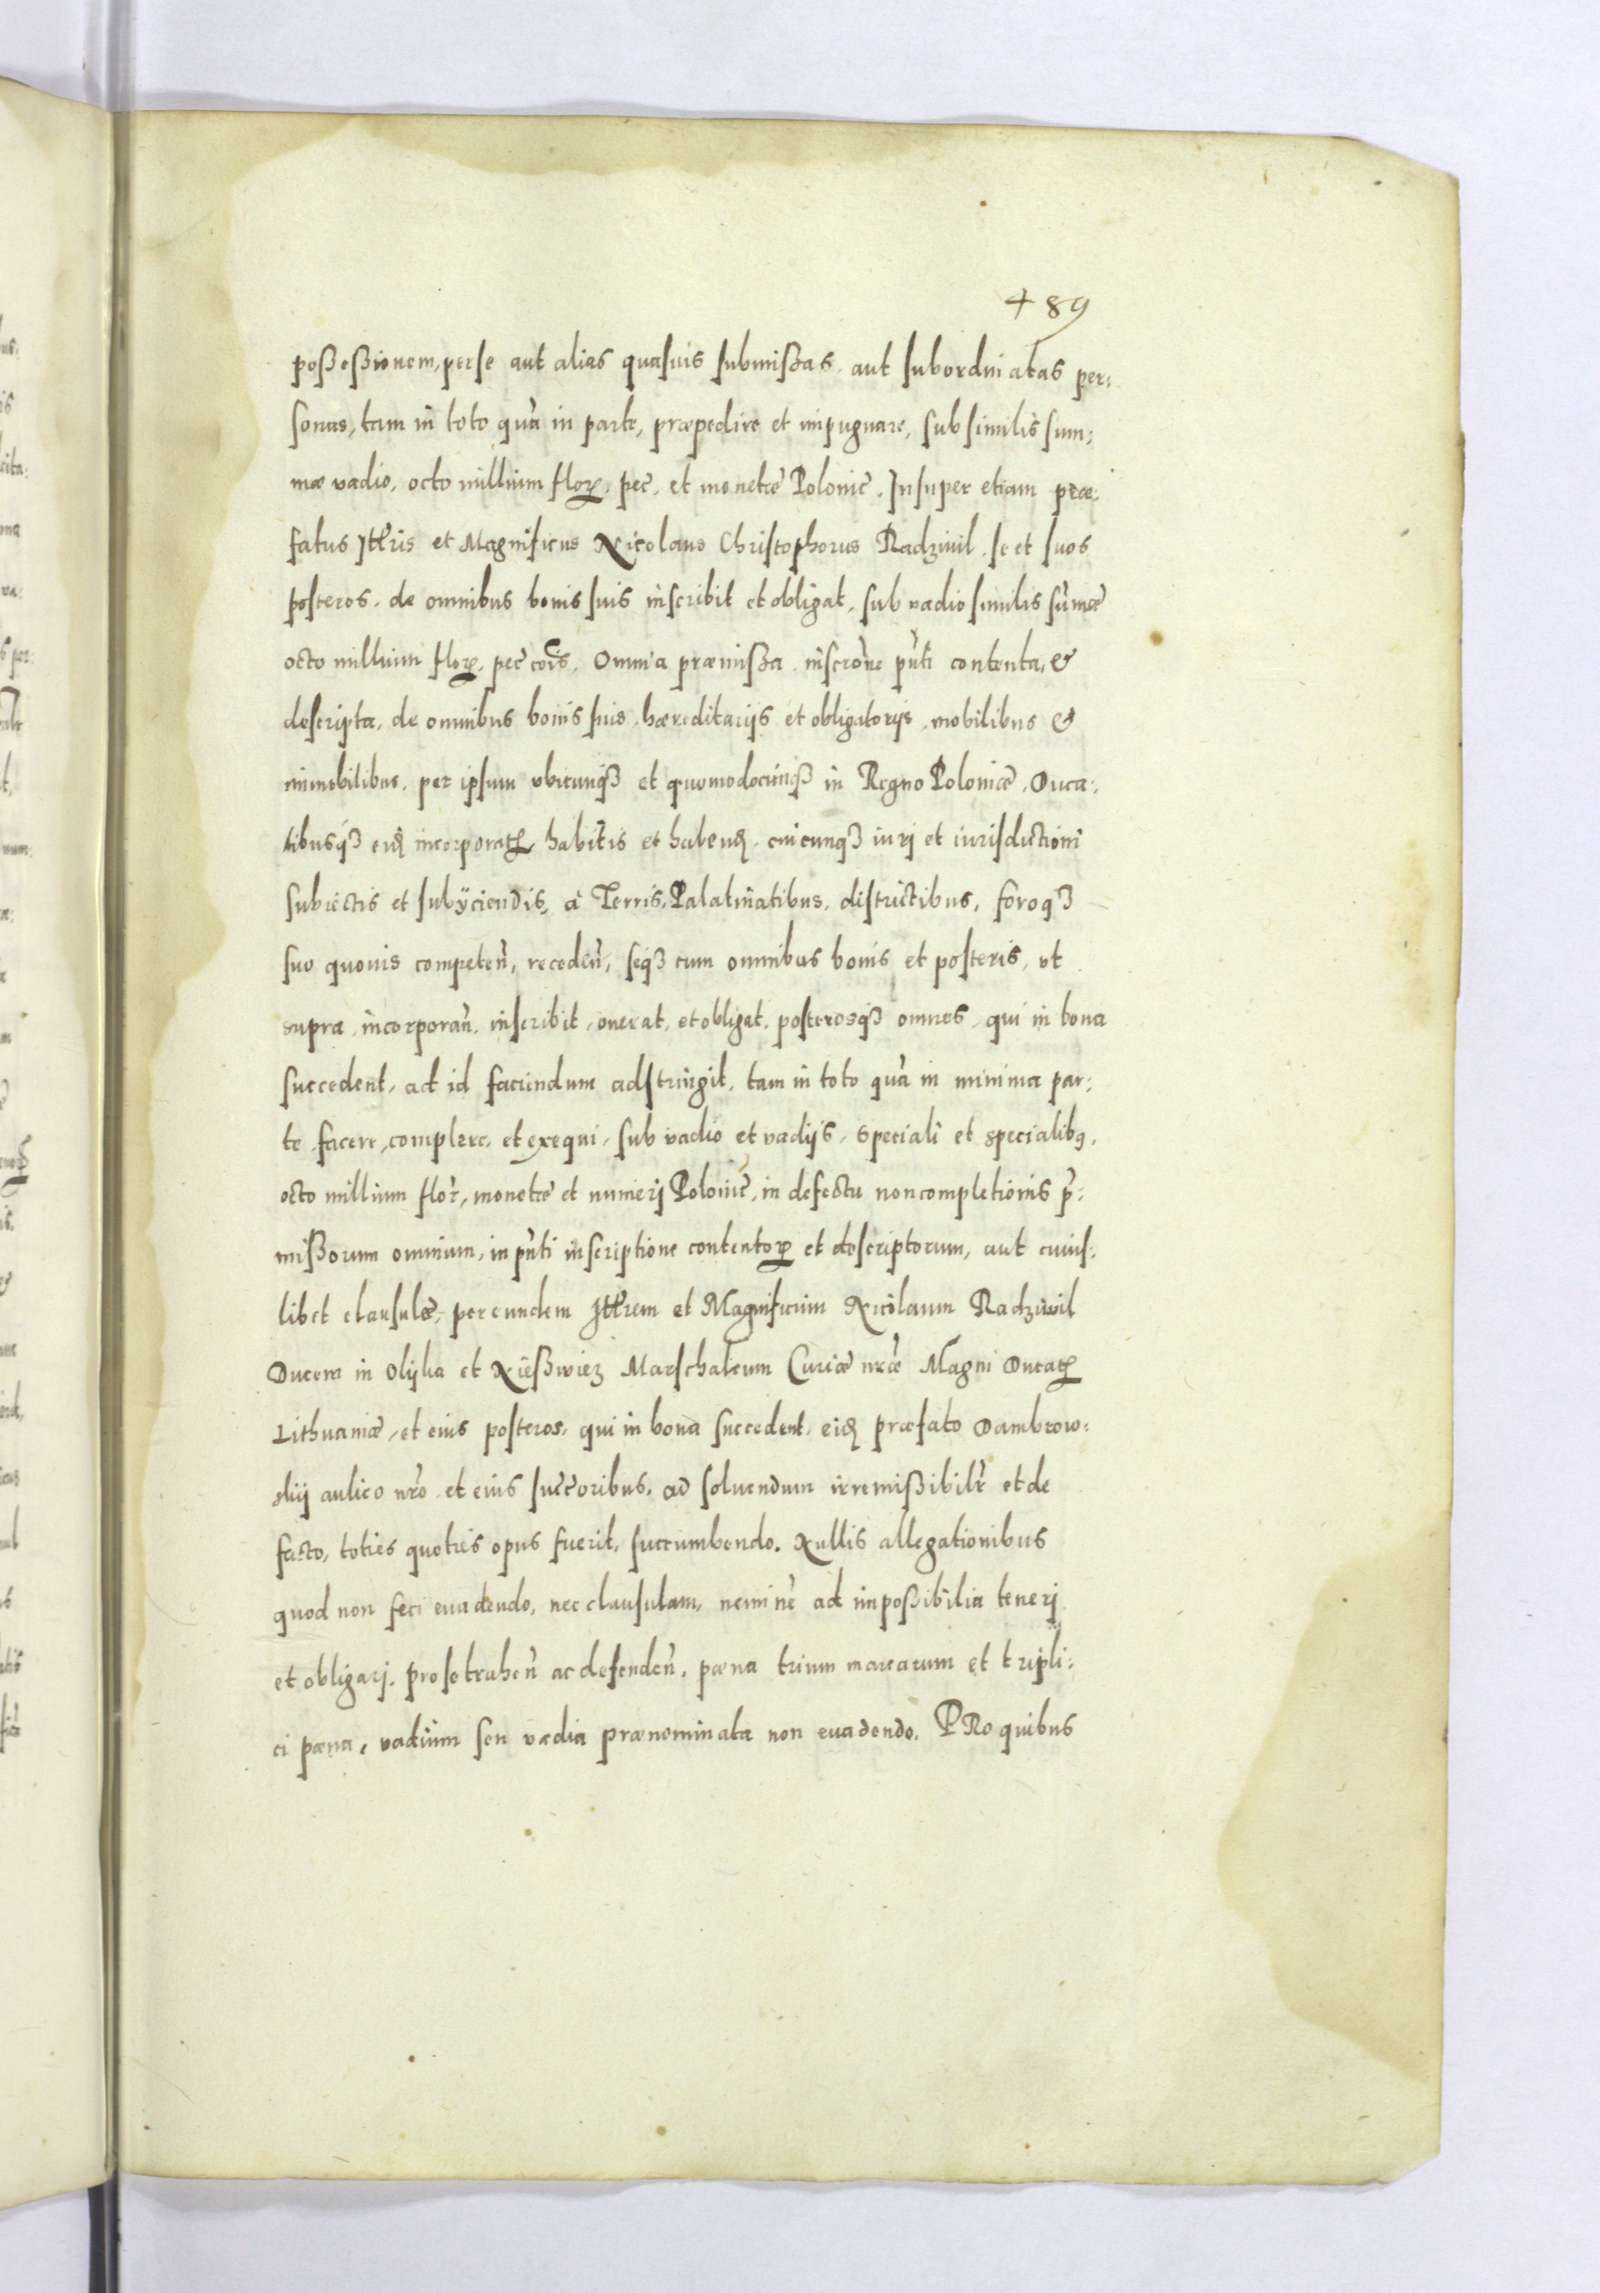 489
poßeßionem, per se aut alias quasuis submißas, aut subordinatas per:
sonas, tam in toto quã in parte, præpedire et impugnare, sub similis sum:
mæ vadio, octo millium floꝝ, pec̃, et monetæ Poloniĉ. Insuper etiam præ:
fatus Illr̃is et Magnificus Nicolaus Christophorus Radziuil, se et suos
posteros, de omnibus bonis suis inscribit et obligat, sub vadio similis sũmæ
octo millium floꝝ, pec̃ cõis. Omnia præmißa inscrõne pñti contenta, &
descripta, de omnibus bonis suis, hæreditarijs et obligatorijs, mobilibus &
immobilibus, per ipsum vbicunqꝫ et quomodocunqꝫ in Regno Poloniæ, Duca:
tibusqꝫ eid incorporatꝝ habitis et habend, cuicunqꝫ iuri et iurisdictioni
subiectis et subÿciendis, à Terris, Palatinatibus, districtibus, foroqꝫ
suo quouis competeñ, recedeñ, seqꝫ cum omnibus bonis et posteris, vt
supra, incorporañ, inscribit, onerat, et obligat, posterosqꝫ omnes, qui in bona
succedent, ad id faciendum adstringit, tam in toto quã in minima par:
te facere, complere, et exequi, sub vadio et vadijs, speciali et specialibꝰ,
octo millium flor̃, monetæ et numerj Poloniĉ, in defectu non completionis p̃:
mißorum omnium, in pñti inscriptione contentoꝝ et descriptorum, aut cuius:
libet clausulæ, per eundem Illr̃em et Magnificum Nicolaum Radziwil
Ducem in Olijka et Nießwiez Marschalcum Curiæ nr̃æ Magni Ducatꝝ
Lithuaniæ, et eius posteros, qui in bona succedent, eid præfato Dambrow:
skij aulico nr̃o et eius succ̃oribus, ad soluendum irremißibilr̃ et de
facto, toties quoties opus fuerit, succumbendo. Nullis allegationibus
quod non feci euadendo, nec clausulam, neminẽ ad impoßibilia tenerj
et obligarj, pro se traheñ ac defendeñ, pæna trium marcarum et tripli:
ci pæna, vadium seu vadia prænominata non euadendo. PRo quibus